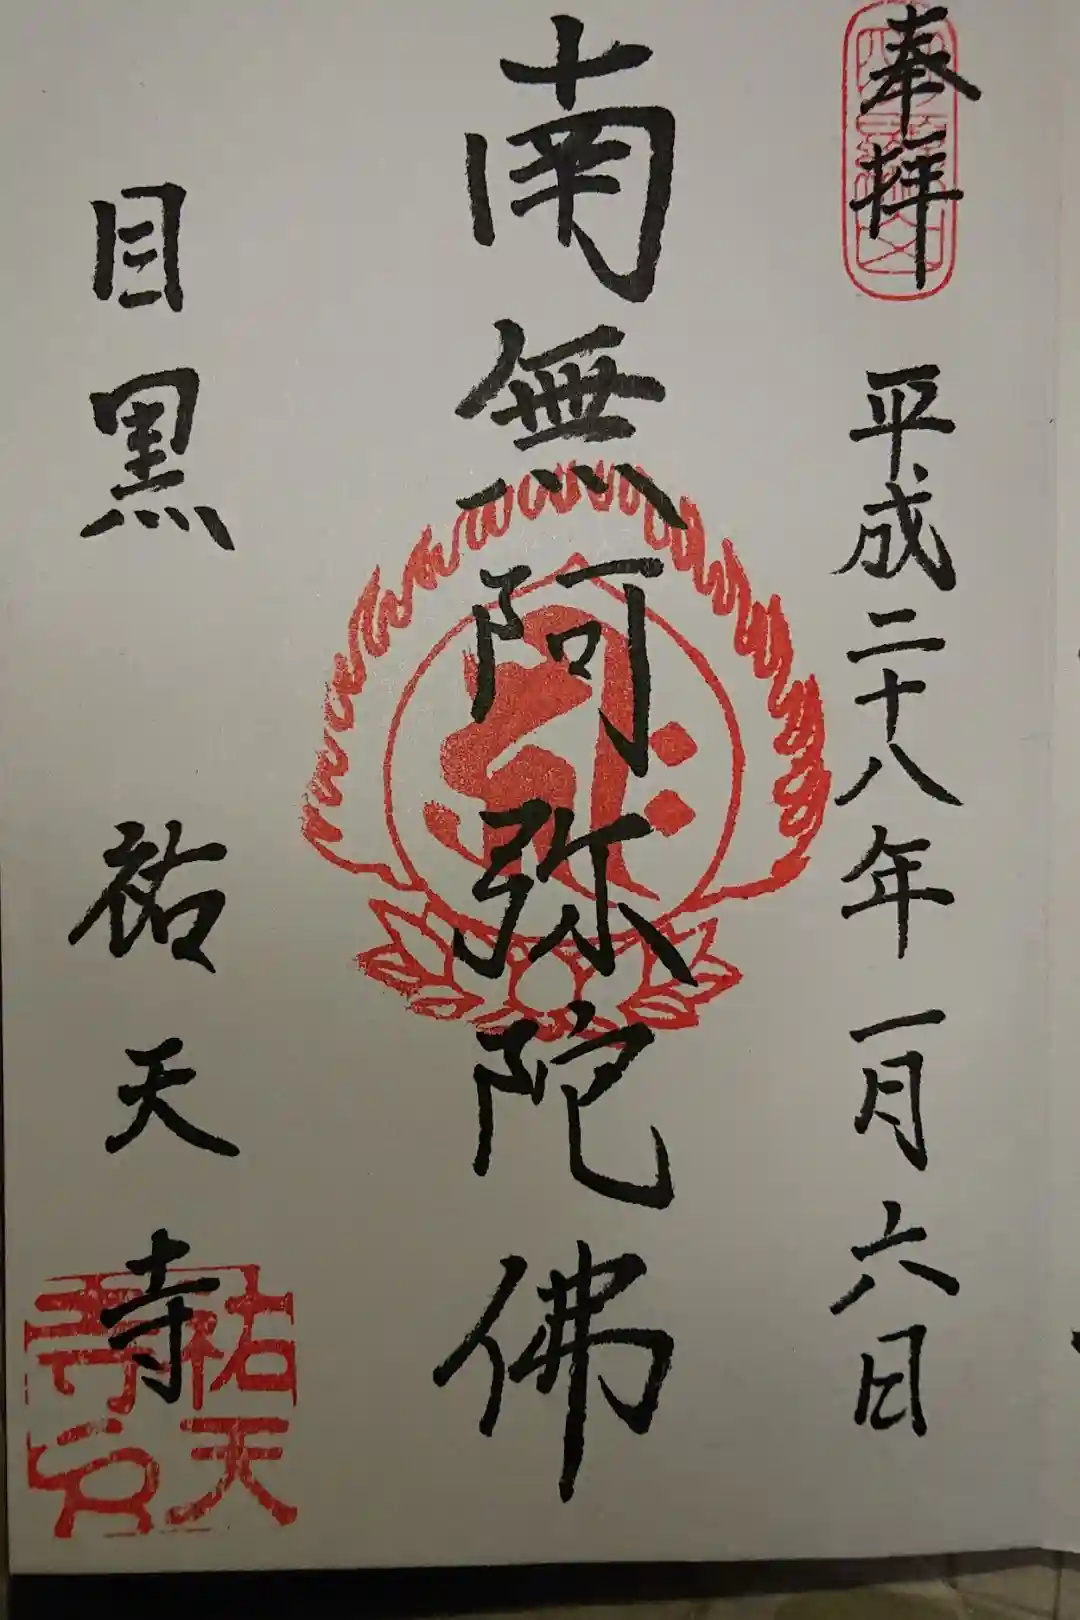 奉拝 平成二十八年一月六日
南無阿弥陀佛
目黒 祐天寺
祐天
寺